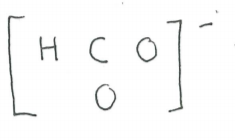 [H C O]⁻
O